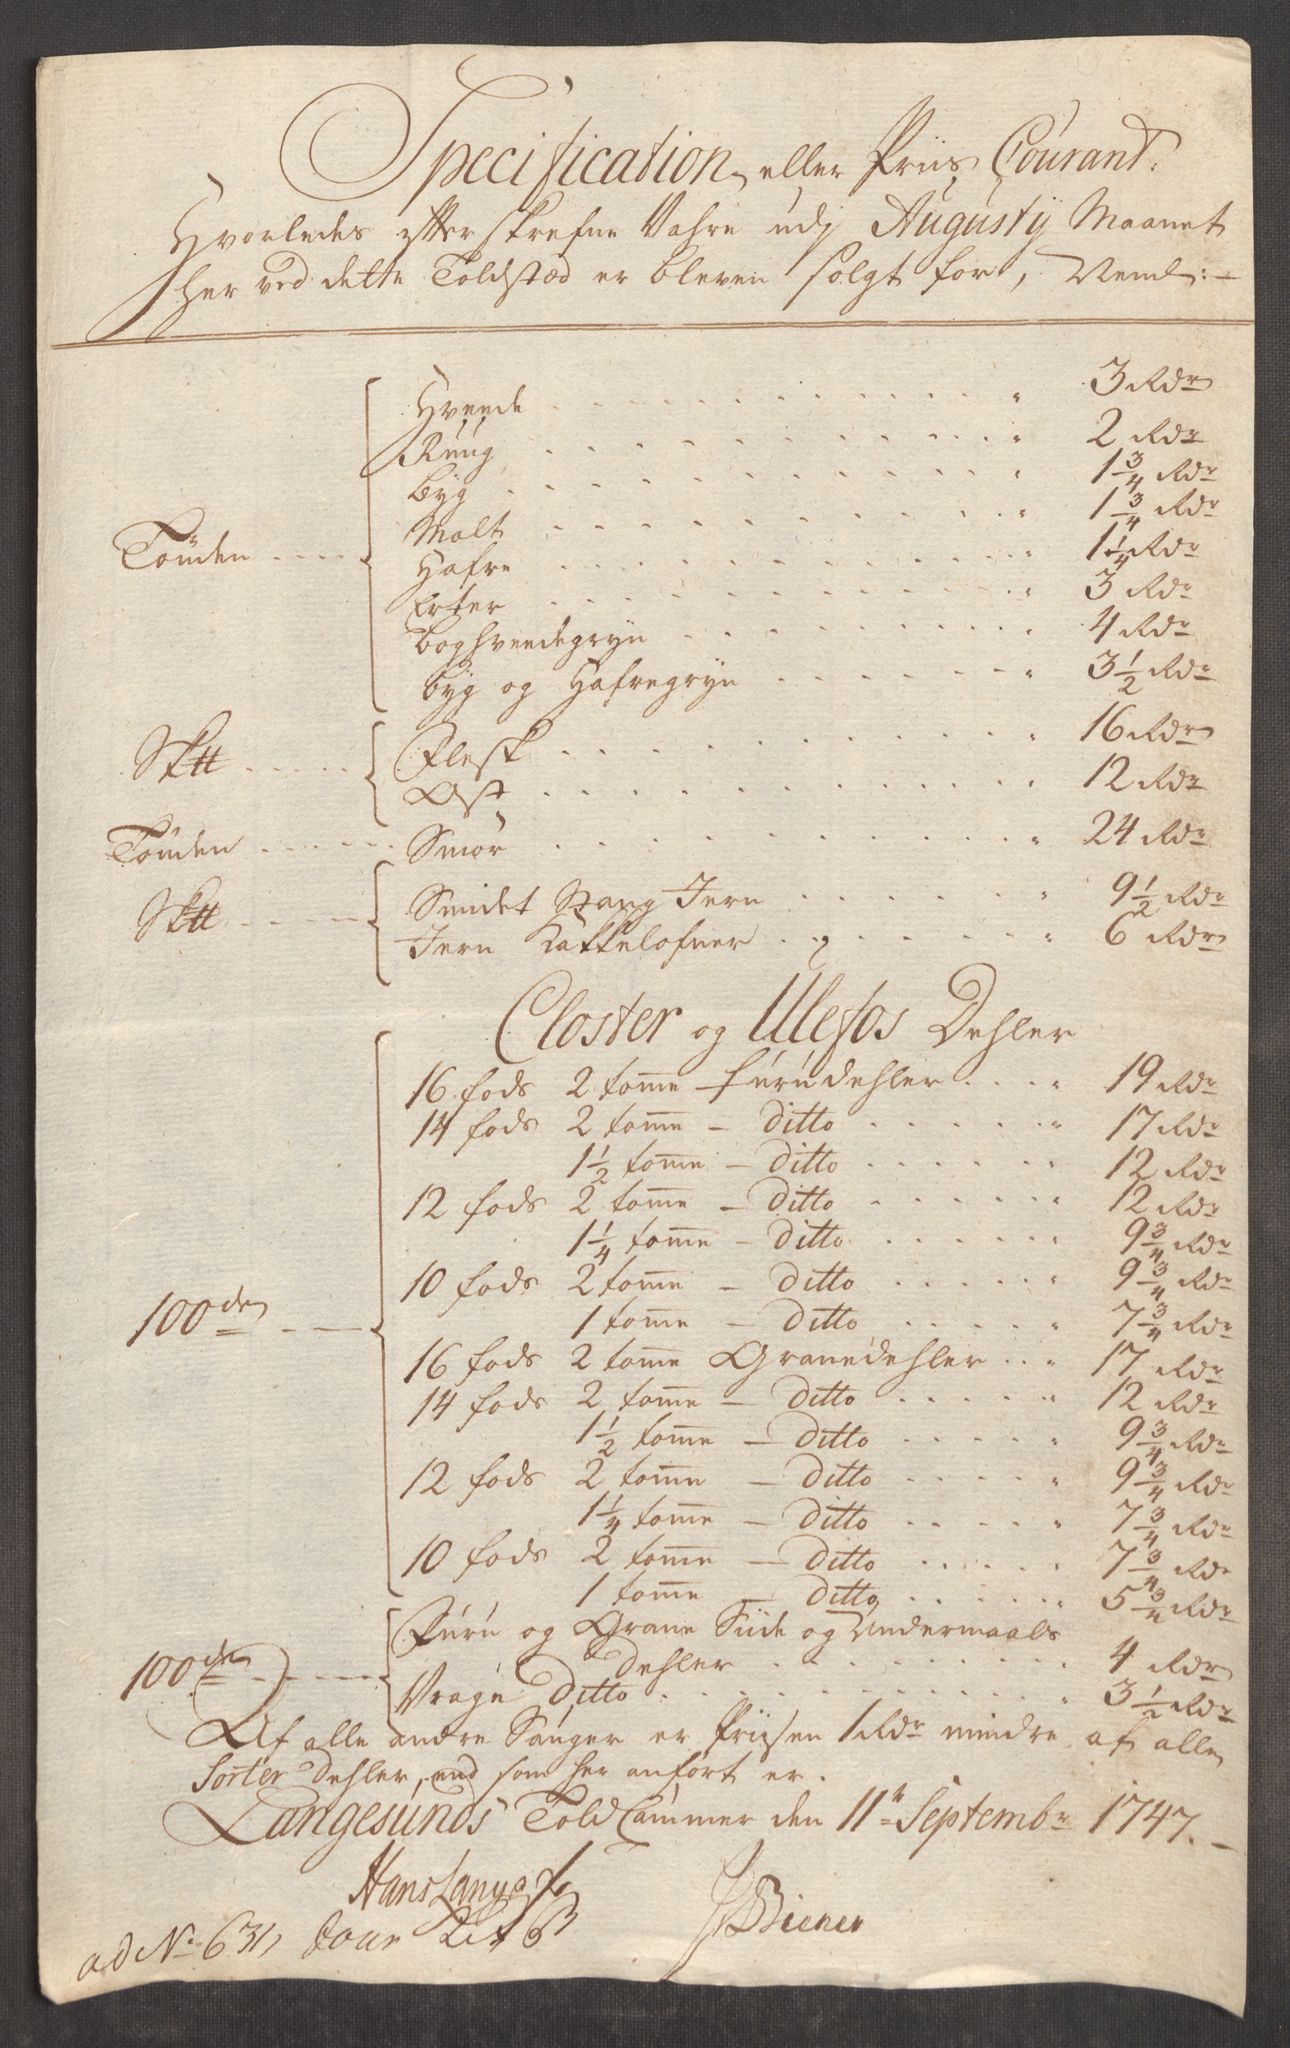 Specification eller Priis Courant.
Hvorledes efterskrefne Vahre udj Augustij Maanet
her ved dette Toldstæd er bleven solgt for, Neml:
Tönden
Hveede 3 Rdr
Rúúg 2 Rdr
Byg 1 3/4 Rdr
Malt 1 3/4 Rdr
Hafre 1 1/4 Rdr
Erter 3 Rdr
Boghveedegryn 4 Rdr
Byg og Hafregryn 3 1/2 Rdr
Sk℔
Flesk 16 Rdr
Ost 12 Rdr
Tönden Smör 24 Rdr
Sk℔
Smidet Stang Jern 9 1/2 Rdr
Jern Kakkelofner 6 Rdr
Closter og Ulefos Dehler
100de
16 fods 2 tomme furúdehler 19 Rdr
14 fods 2 tomme – ditto 17 Rdr
1 1/2 tomme – ditto 12 Rdr
12 fods 2 tomme – ditto 12 Rdr
1 1/4 tomme – ditto 9 3/4 Rdr
10 fods 2 tomme – ditto 9 3/4 Rdr
1 tomme – ditto 7 3/4 Rdr
16 fods 2 tomme Granedehler 17 Rdr
14 fods 2 tomme – ditto 12 Rdr
1 1/2 tomme – ditto 9 3/4 Rdr
12 fods 2 tomme – ditto 9 3/4 Rdr
1 1/4 tomme – ditto 7 3/4 Rdr
10 fods 2 tomme – ditto 7 3/4 Rdr
1 tomme – ditto 5 3/4 Rdr
100de
Fúrú og Grane Siide og Undermaals
Dehler 4 Rdr
Vrage Ditto 3 1/2 Rdr
Af alle andre Sauger er Priisen 1 Rdr mindre af alle
Sorter Dehler, end som her anfört er.
Langesunds Told Cammer den 11te Septembr 1747.
Hans Lange
Biener
ad No 631,